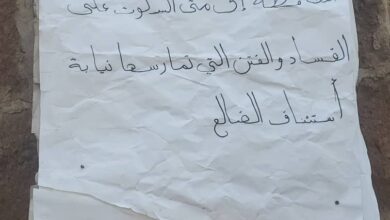 إلى متى السكوت على
الفساد والفتن التي تمارسها نيابة
أستئناف الضالع